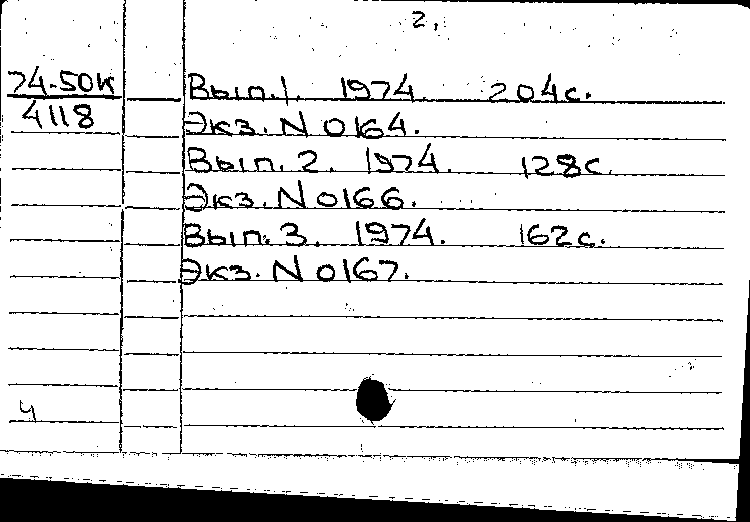 2.
74-50к
4118
Вып.1. 1974. 204с.
Экз. N 0164.
Вып. 2. 1974. 128с.
Экз. N 0166.
Вып. 3. 1974. 162с.
Экз. N 0167.
ч